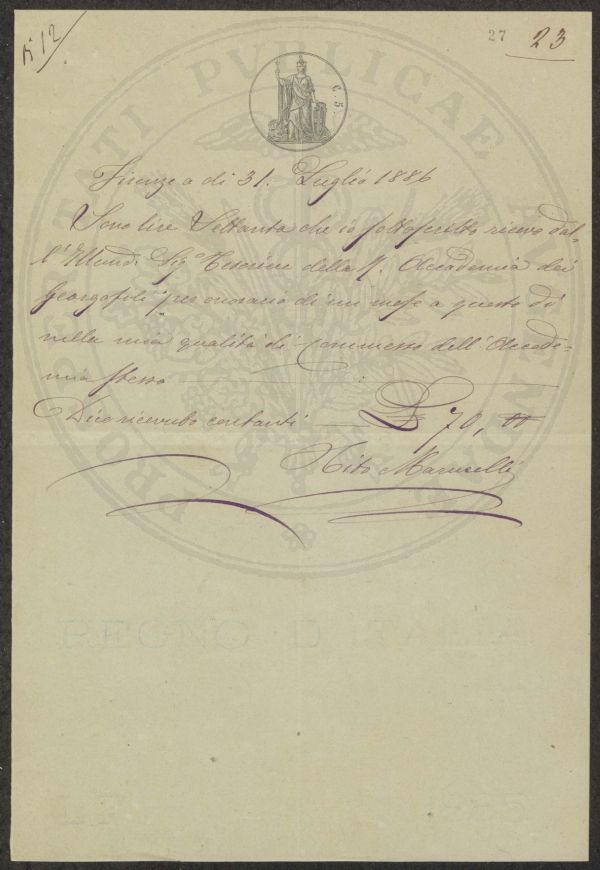 N 12
27 23
PROSPERITATI PVBLICAE AVGENDAE
C. 5
Firenze a di 31. Luglio 1886
Sono lire Settanta che io sottoscritto ricevo dal-
l'Illmo. Sigo Tesoriere della R. Accademia dei
Georgofili per onorario di un mese a questo dì
nella mia qualità di Commesso dell'Accade-
mia stessa
Dico ricevute contanti L 70, 00
Tito Maruselli
REGNO D ITALIA